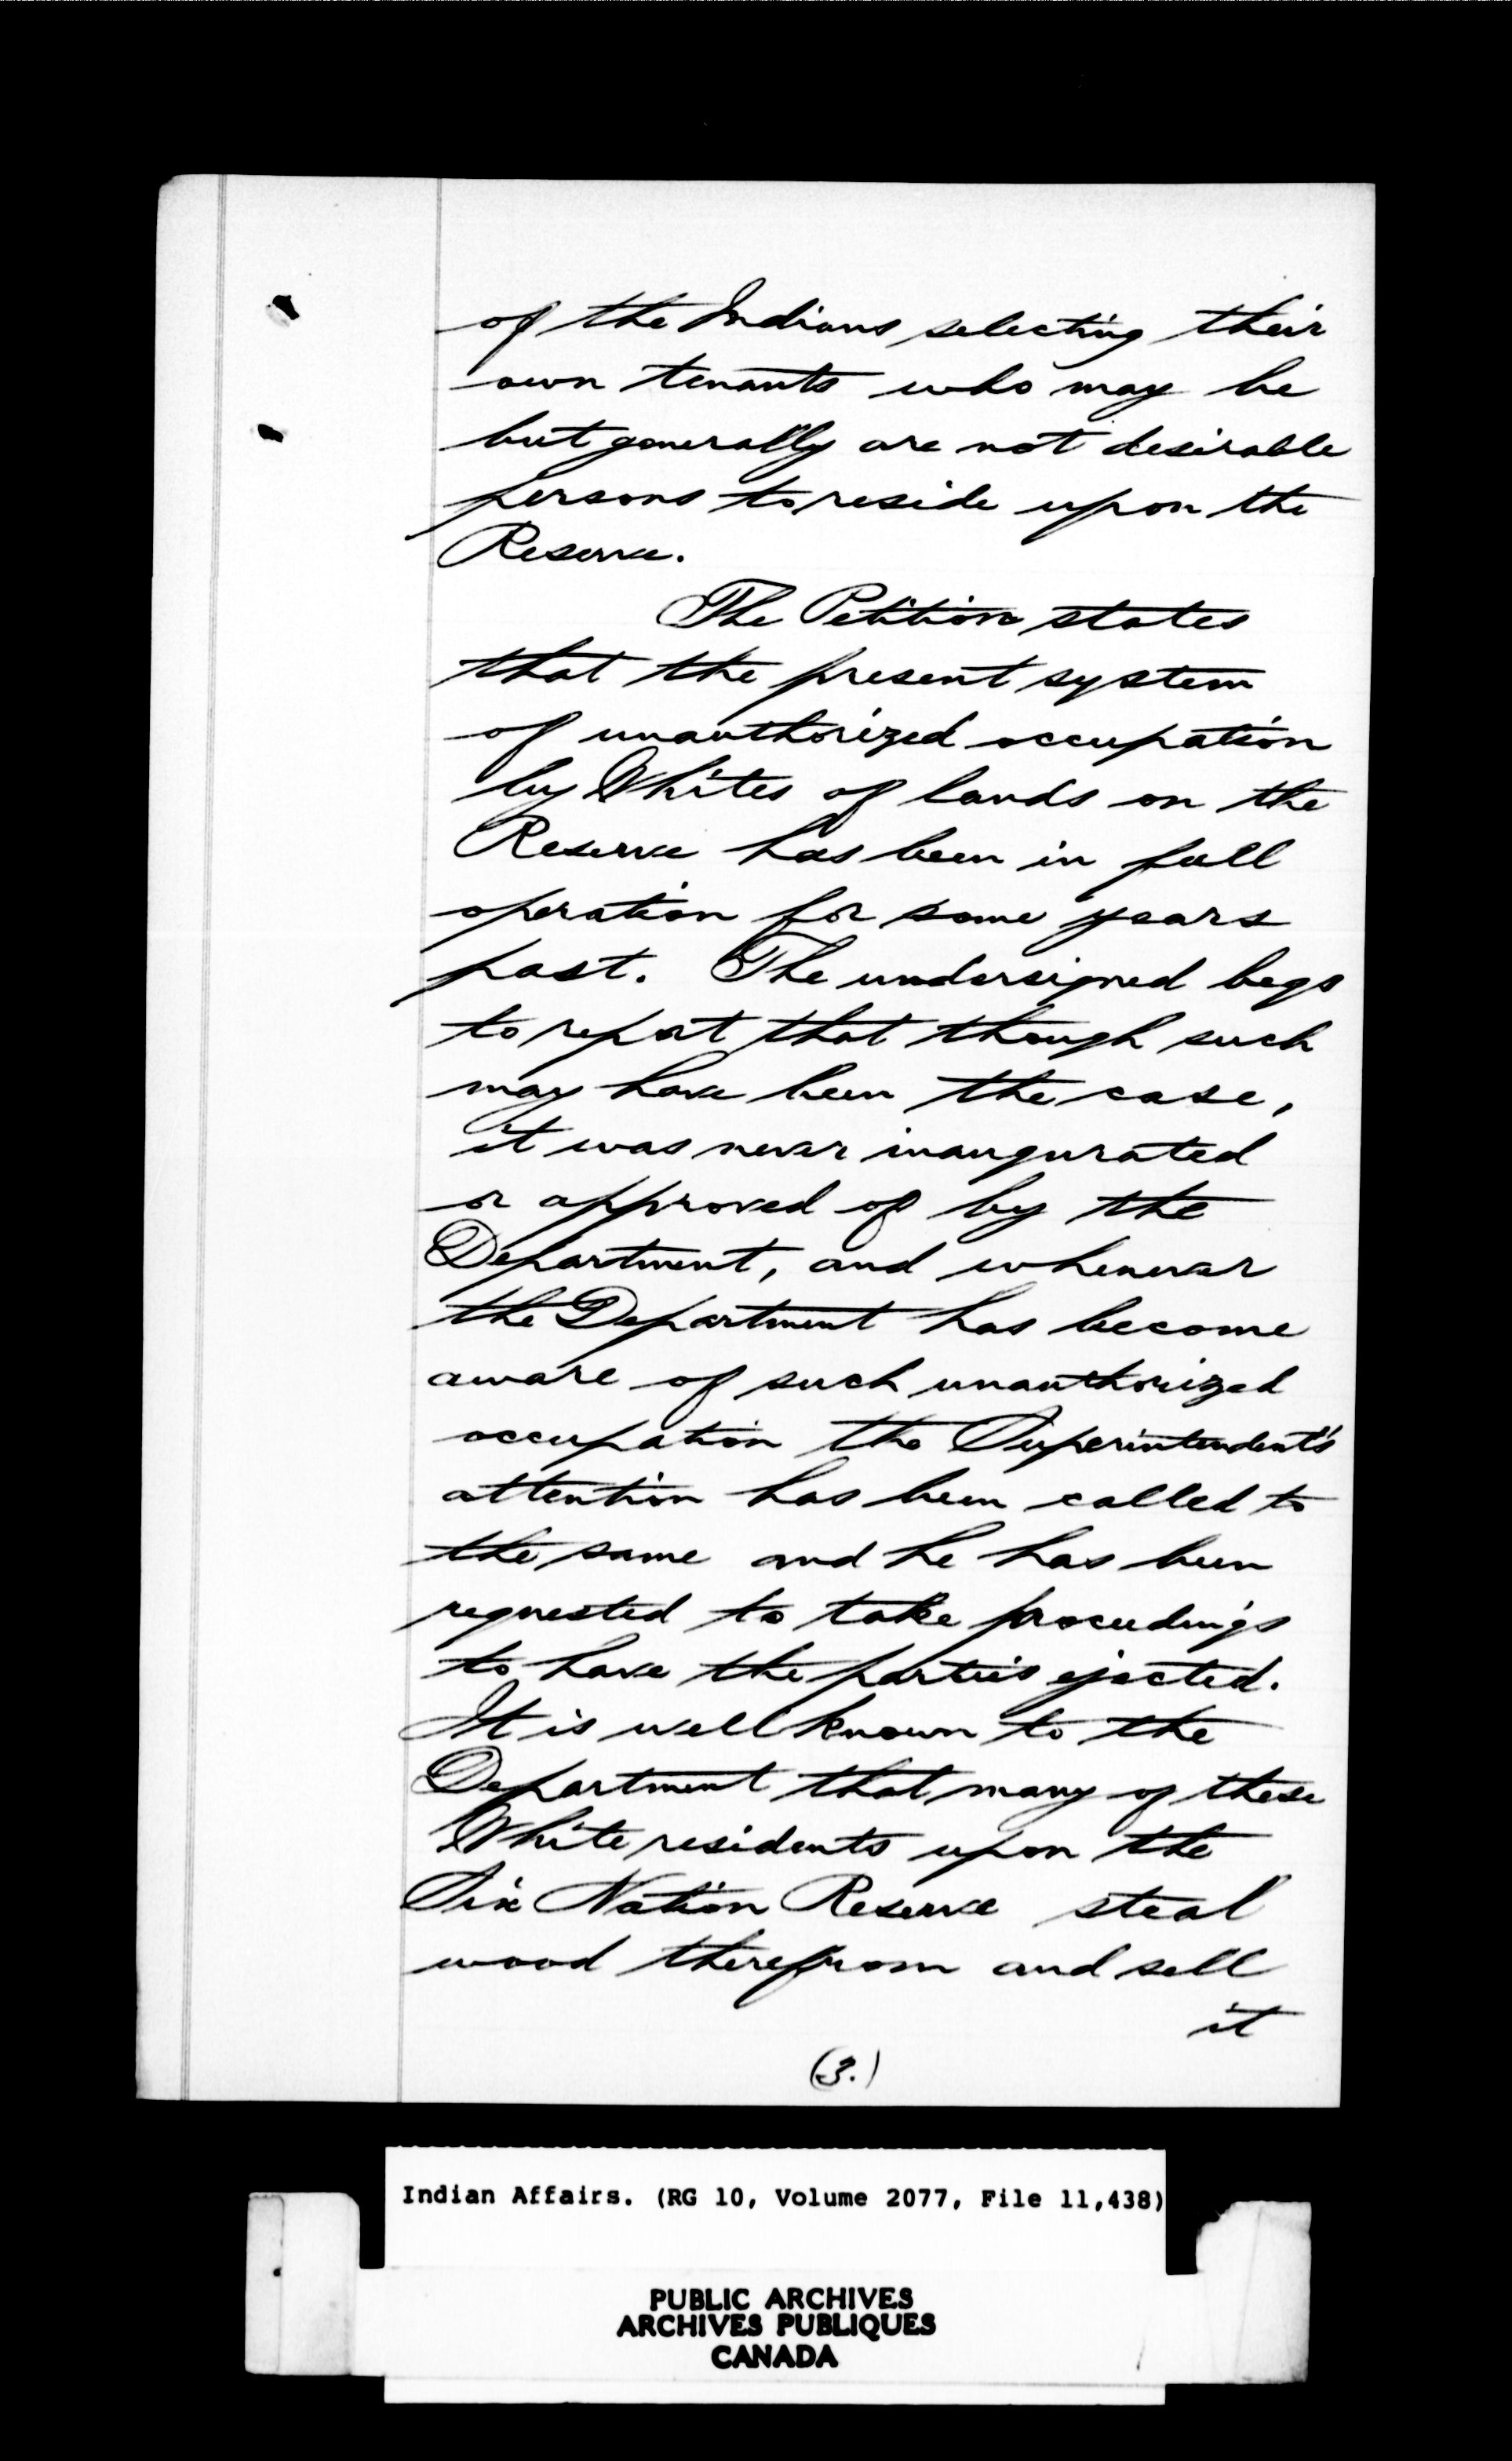 of the Indians selecting their
own tenants who may be
but generally are not desirable
persons to reside upon the
Reserve.
The Petition states
that the present system
of unauthorized occupation
by Whites of lands on the
Reserve has been in full
operation for some years
past. The undersigned begs
to report that though such
may have been the case,
it was never inaugurated
or approved of by the
Department, and whenever
the Department has become
aware of such unauthorized
occupation the Superintendent's
attention has been called to
the same and he has been
requested to take proceedings
to have the parties ejected.
It is well known to the
Department that many of these
White residents upon the
Six Nation Reserve steal
wood therefrom and sell
it
(3.)
Indian Affairs. (RG 10, Volume 2077, File 11,438)
PUBLIC ARCHIVES
ARCHIVES PUBLIQUES
CANADA